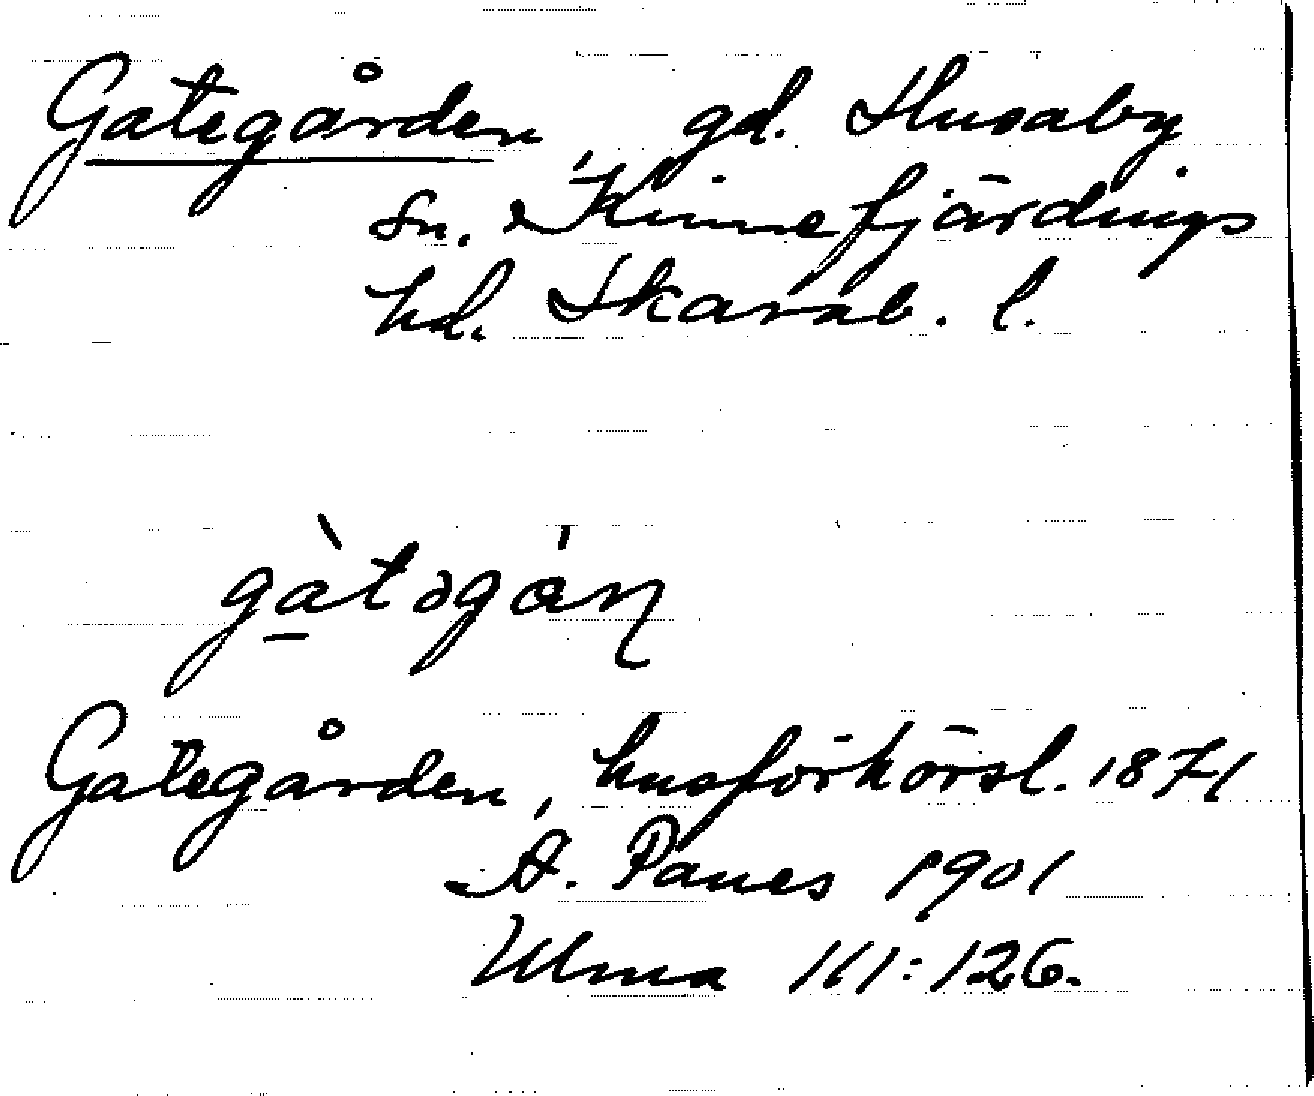 Gategården gd. Husaby
sn. Kinnefjärdings
hd. Skarab. l.
gàtəgán
Gategården, husförhörsl. 1871
A. Panes 1901
Ulma 111:126.